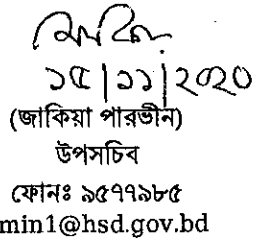 ১৫|১১|২০২০
(জাকিয়া পারভীন)
উপসচিব
ফোনঃ ৯৫৭৭৯৮৫
min1@hsd.gov.bd